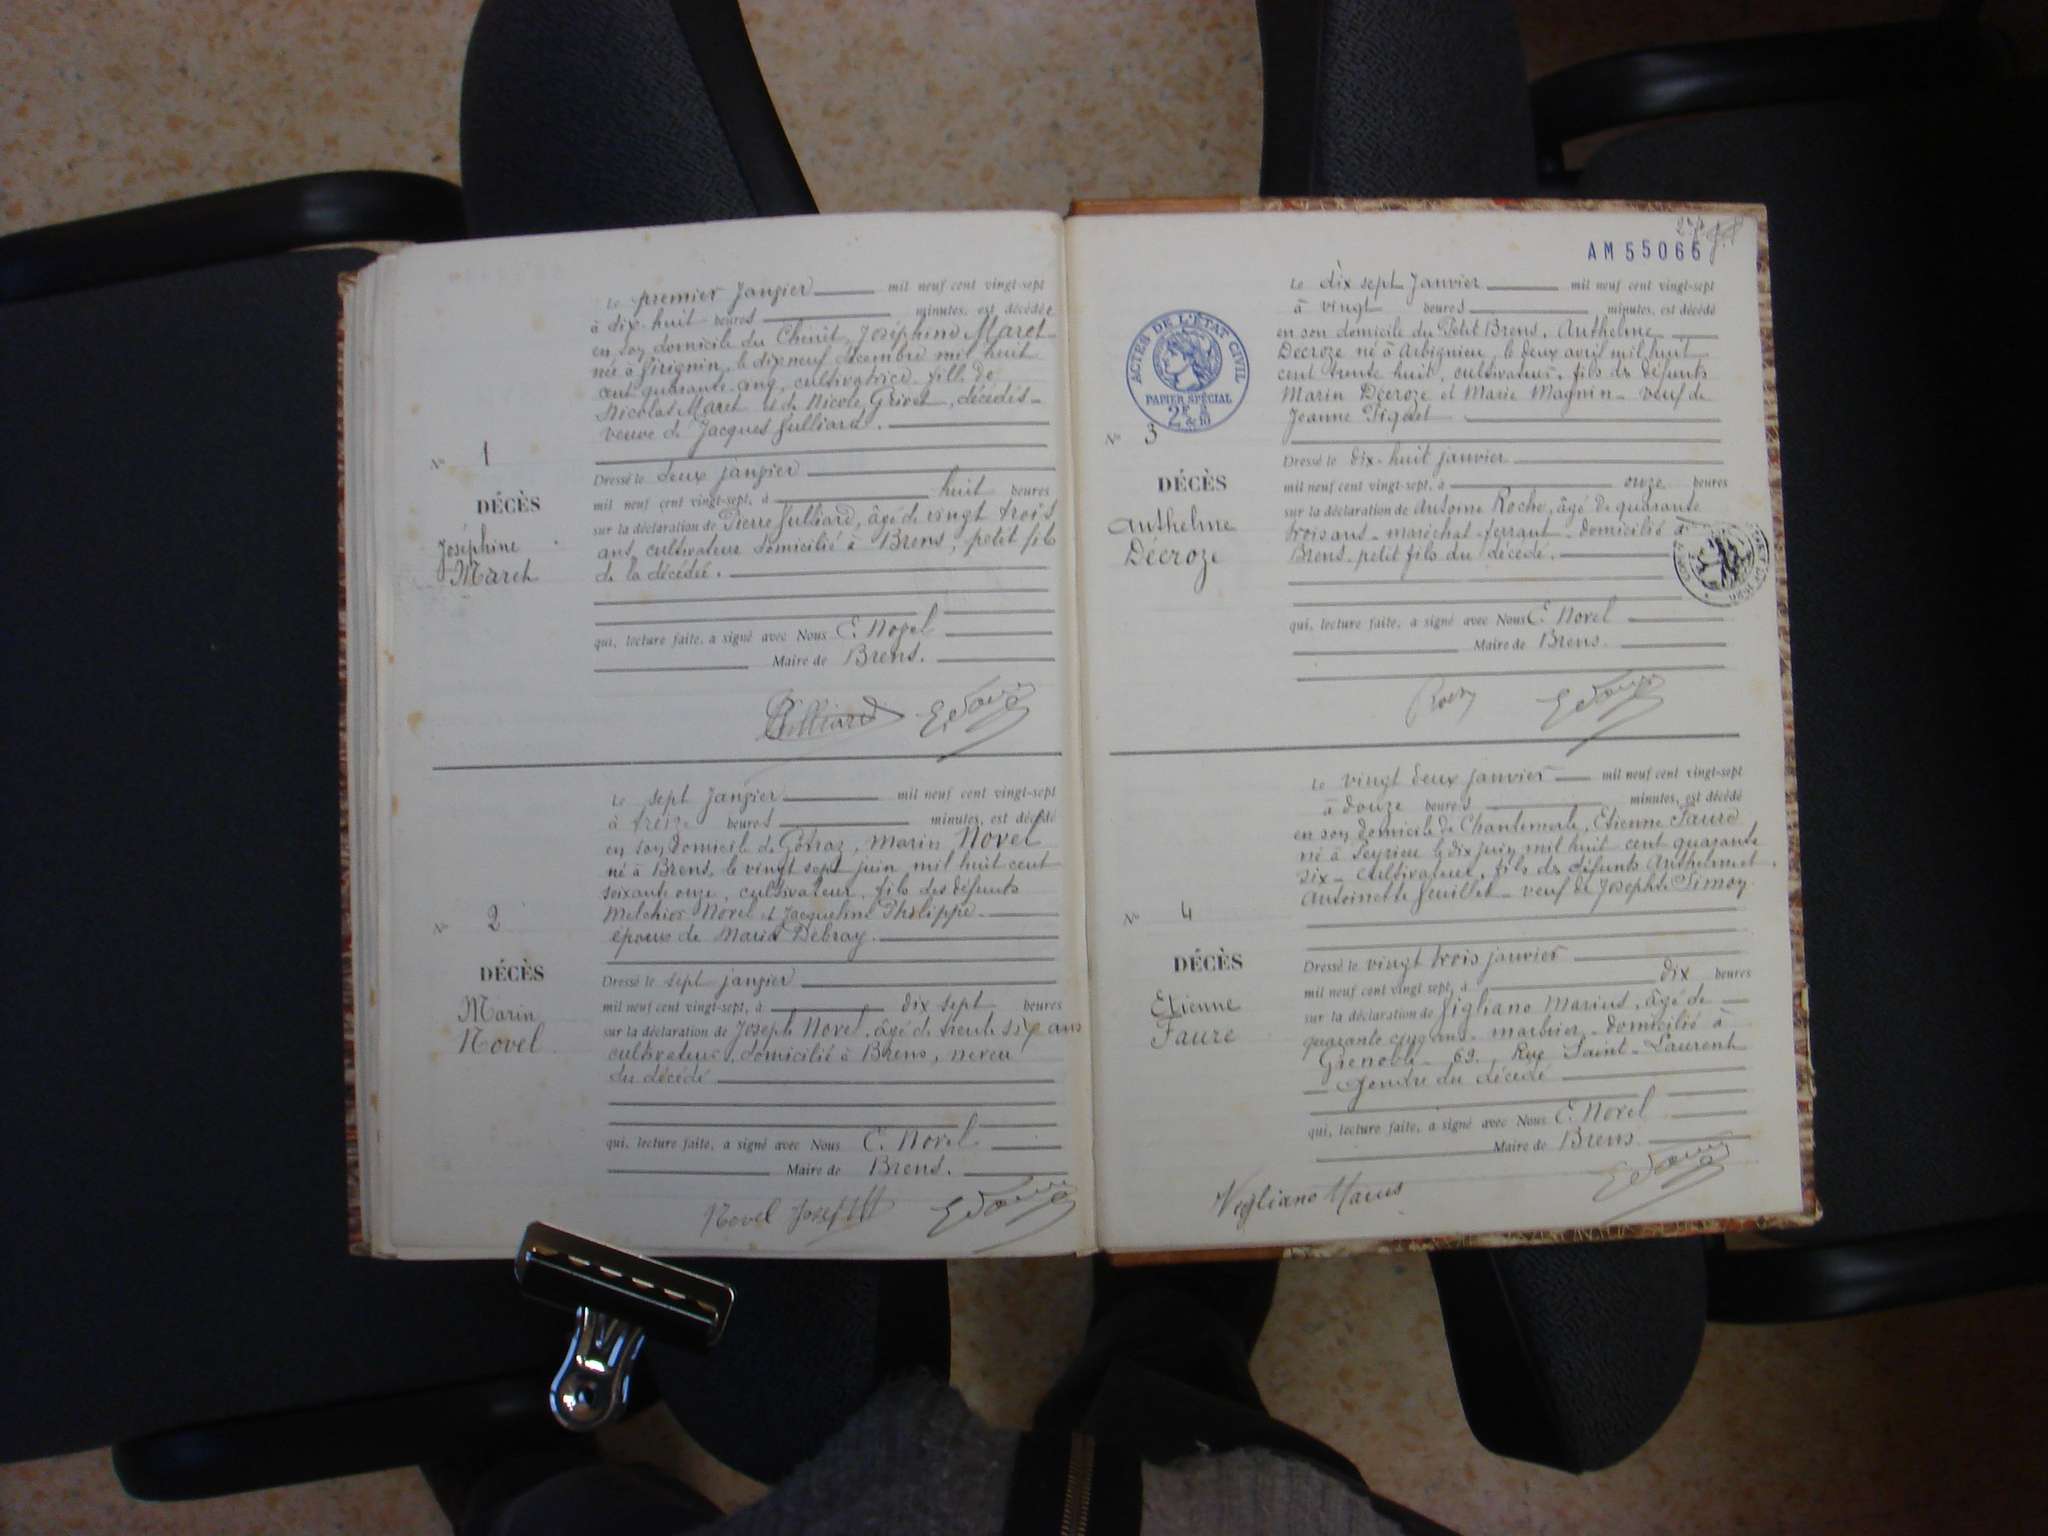 Le premier janvier mil neuf cent vingt-sept
à dix-huit heures minutes, est décédée
en son domicile du Joséphine Maret
née à Virignin, le dix neuf décembre mil huit
cent quarante cinq, cultivatrice, fille de
Nicolas Maret et de Nicole Grivet, décédés
veuve de Jacques Julliard.
N° 1
DÉCÈS
Joséphine
Maret
Dressé le deux janvier
mil neuf cent vingt-sept, à huit heures
sur la déclaration de Pierre Julliard, âgé de vingt trois
ans, cultivateur domicilié à Brens, petit fils
de la décédée.
qui, lecture faite, a signé avec Nous E. Novel
Maire de Brens.
Le sept janvier mil neuf cent vingt-sept
à treize heures minutes, est décédé
en son domicile de Marin Novel
né à Brens, le vingt sept juin mil huit cent
soixante onze, cultivateur, fils des défunts
Melchior Novel et Jacqueline Philippe
époux de Maria Debray.
N° 2
DÉCÈS
Marin
Novel
Dressé le sept janvier
mil neuf cent vingt-sept, à dix sept heures
sur la déclaration de Joseph Novel, âgé de trente six ans
cultivateur, domicilié à Brens, neveu
du décédé
qui, lecture faite, a signé avec Nous E. Novel
Maire de Brens.
Novel Joseph
AM 55066
ACTES DE L'ÉTAT CIVIL
PAPIER SPÉCIAL
Le dix sept janvier mil neuf cent vingt-sept
à vingt heures minutes, est décédé
en son domicile du Petit Brens, Anthelme
Décroze né à Arbignieu, le deux avril mil huit
cent trente huit, cultivateur, fils des défunts
Marin Décroze et Marie Magnin - veuf de
Jeanne Piquet
N° 3
DÉCÈS
Anthelme
Décroze
Dressé le dix-huit janvier
mil neuf cent vingt-sept, à onze heures
sur la déclaration de Antoine Roche, âgé de quarante
trois ans - maréchal-ferrant - domicilié à
Brens, petit fils du décédé.
qui, lecture faite, a signé avec Nous E. Novel
Maire de Brens.
Le vingt deux janvier mil neuf cent vingt-sept
à douze heures minutes, est décédé
en son domicile de Chantemerle, Etienne Faure
né à Peyrieu le dix juin mil huit cent quarante
six - cultivateur, fils des défunts Anthelme et
Antoinette - veuf de Josephte Simon
N° 4
DÉCÈS
Etienne
Faure
Dressé le vingt trois janvier
mil neuf cent vingt-sept, à dix heures
sur la déclaration de Vigliano Marius, âgé de
quarante cinq ans - marbrier - domicilié à
Grenoble - 69, Rue Saint-Laurent
- gendre du décédé
qui, lecture faite, a signé avec Nous E. Novel
Maire de Brens
Vigliano Marius